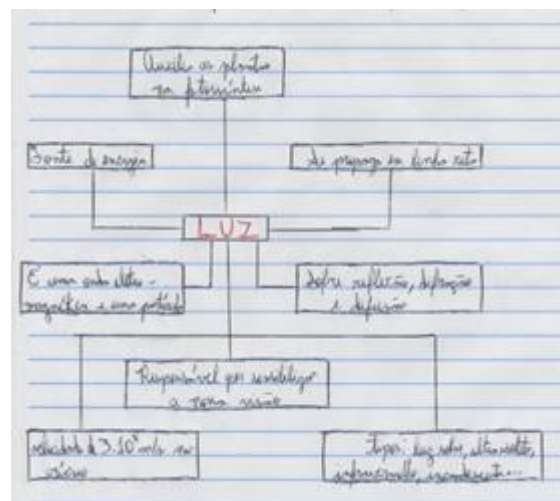 Auxilia as plantas
na fotossíntese
Fonte de energia
Se propaga em linha reta
LUZ
É uma onda eletro-
magnética e uma partícula
Sofre reflexão, difração
e difusão
Responsável por sensibilizar
a nossa visão
velocidade de 3.10⁸ m/s no
vácuo
tipos: luz solar, ultravioleta,
infravermelho, incandescente...